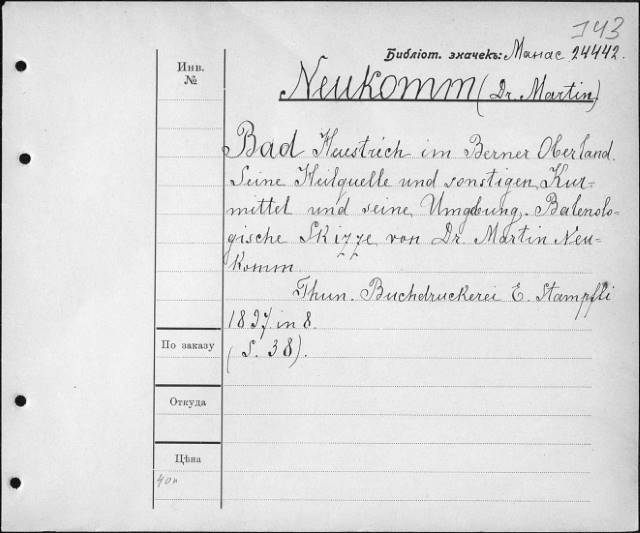 143
Библіот. значекъ: Манас 24442.
Инв.
№
Neukomm (Dr. Martin)
Bad Heustrich im Berner Oberland.
Seine Heilquelle und sonstigen Kur-
mittel und seine Umgebung. Balenolo-
gische Skizze von Dr. Martin Neu-
komm
Thun. Buchdruckerei E. Stampfli
1897 in 8.
(S. 38).
По заказу
Откуда
Цѣна
40к